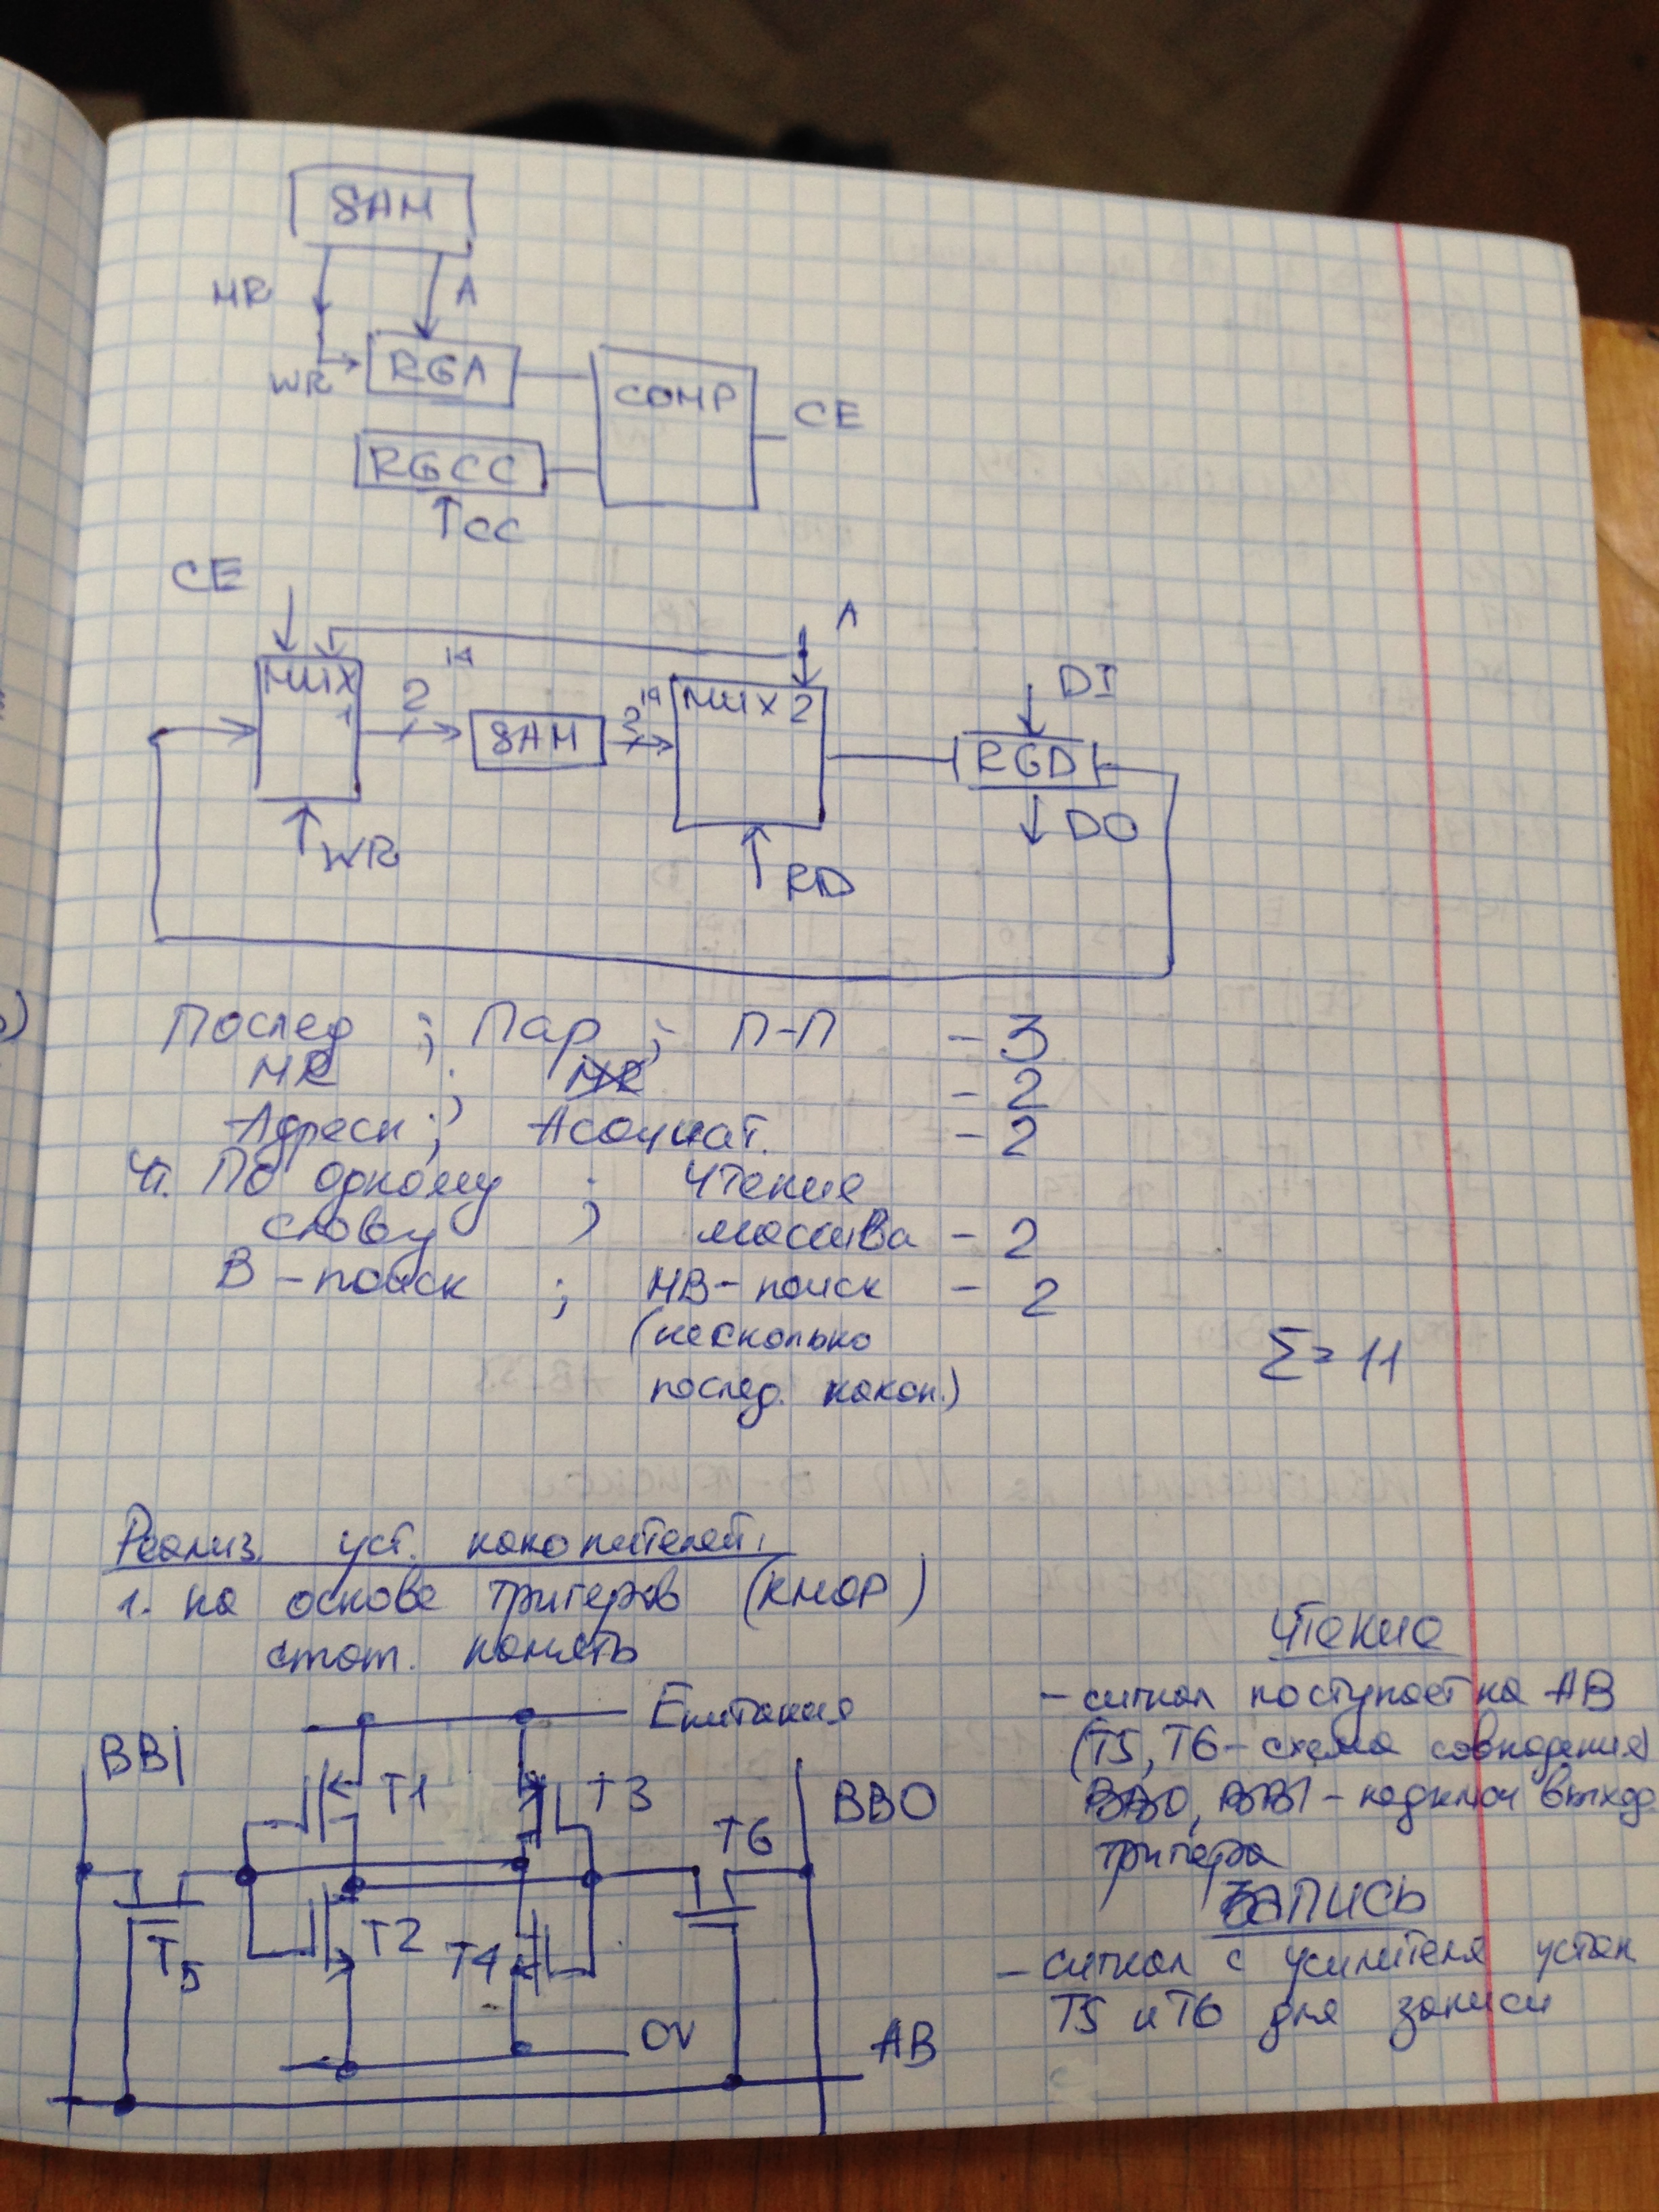 SAM
MR
A
WR
RGA
COMP
CE
RGCC
CC
CE
A
MUX
1
2
14
SAM
2
14
MUX 2
DI
RGD
DO
WR
RD
Послед ; Пар ; П-П - 3
MR ; MR - 2
Адресн ; Асоциат. - 2
Чт. По одному ; Чтение
слову массива - 2
В-поиск ; НВ-поиск - 2
(несколько
послед. накоп.)
Σ = 11
Реализ. уст. накопителей:
1. на основе тригеров (КМОР)
стат. память
Епитания
BB1
T1
T3
BB0
T6
T5
T2
T4
0V
AB
Чтение
- сигнал поступает на АВ
(T5, T6 - схема совпадения)
BB0, BB1 - подключ выход
тригера
Запись
- сигнал с усилителя устан
T5 и T6 для записи